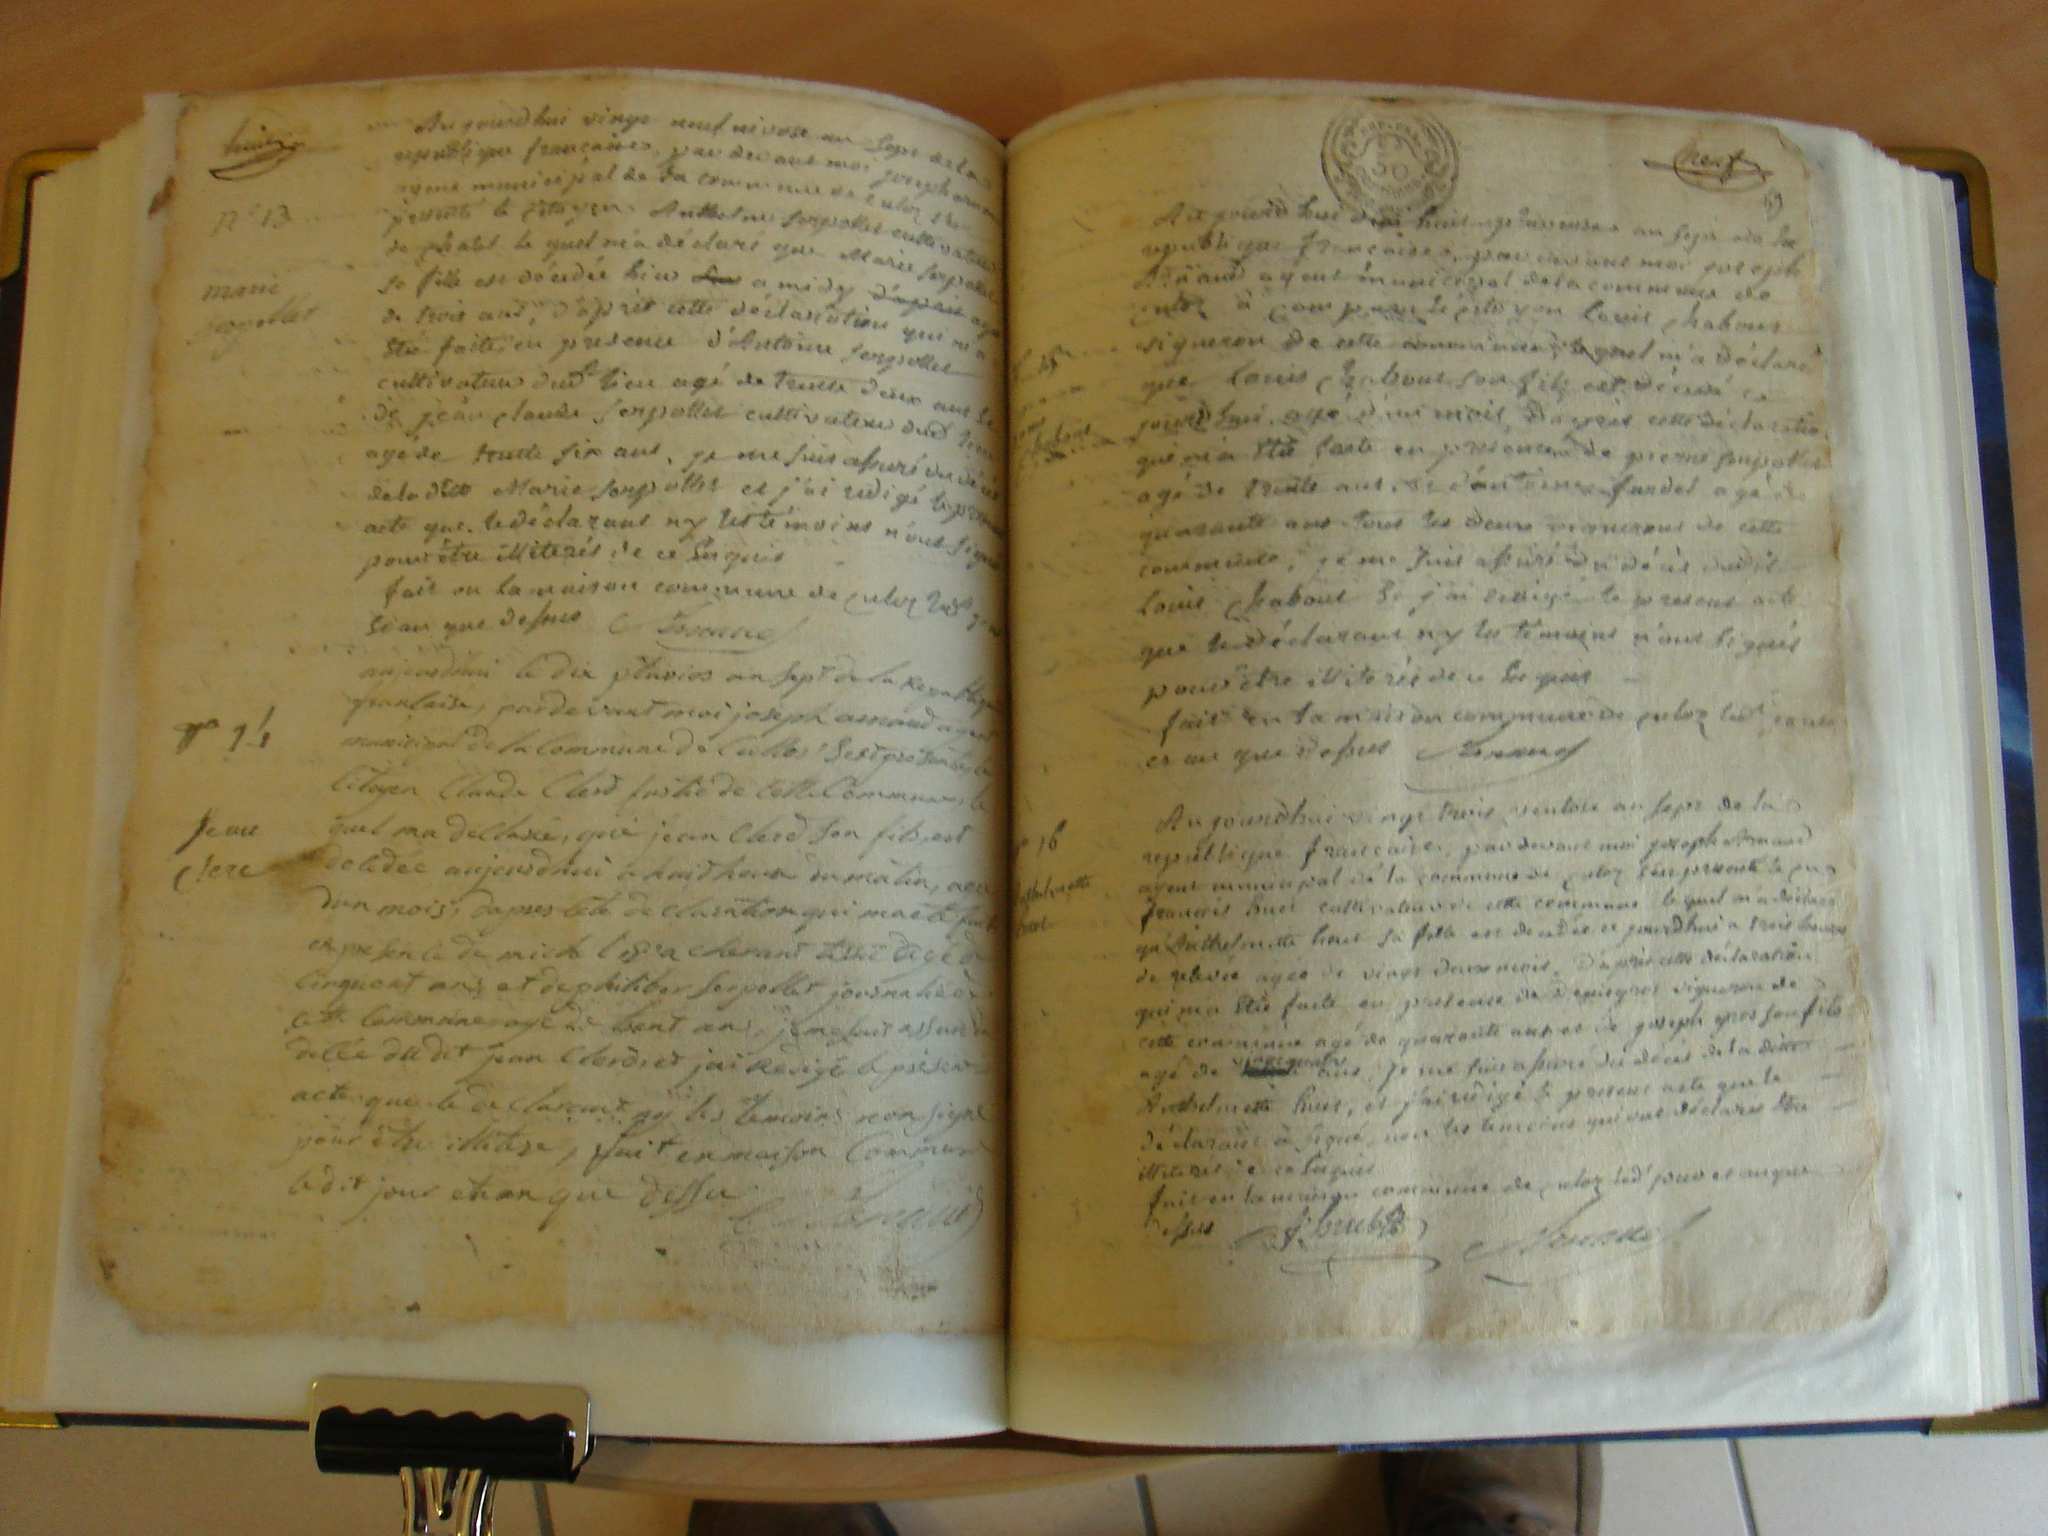 huit
N° 13
marie
serpollet
Aujourdhui vingt neuf nivose an sept de la
republique française, par devant moi joseph
agent municipal de la commune de culoz
présenté le citoyen Anthelme serpollet cultivateur
le quel m'a déclaré que Marie serpollet
sa fille est décédée hier a midy
de trois ans, d'après cette déclaration qui m'a
été faite, en presence d'Antoine serpollet
cultivateur dud. lieu agé de trente deux ans &
de jean claude serpollet cultivateur dud. lieu
agé de trente six ans, je me suis assuré du décès
de la ditte Marie serpollet et j'ai redigé le present
acte que le déclarant ny les témoins n'ont signé
pour être illiterés de ce enquis
fait en la maison commune de culoz led. jour
& an que dessus Armand
n° 14
Jean
Clerc
aujourdhui le dix pluvios an sept de la Republique
franSaise, pardevant moi joseph armand agent
municipal de la Commune de Culloz
Citoyen Claude Clerc de cette Commune le
quel ma decllaré, que jean Clerc son fils, est
decedee aujourdhui a huit heure du matin, age
dun mois, dapres cete declaration qui ma été faite
en presence de michel
cinquant ans et de philiber Serpollet journalié de
cette Commune age de trent ans, je me suit assuré du
décée dudit jean Clerc et jai Redigé le présent
acte que le declarant ny les temoins non signé
pour être illitéré, fait en maison Commune
le dit jour et an que dessu
Armand
neuf
9
Aujourd'hui an sept de la
republique française, par devant moi joseph
Armand agent municipal de la commune de
culoz à comparu le citoyen Louis Chabout
vigneron de cette commune, lequel m'a déclaré
que Louis Chabout son fils est décédé ce
jourdhui, agé d'un mois, d'après cette déclaration
qui m'a été faite en presence de pierre serpollet
agé de trente ans, & d'antoine agé de
quarante ans tous les deux vignerons de cette
commune, je me suis assuré du décès dudit
Louis Chabout & j'ai redigé le present acte
que le déclarant ny les témoins n'ont signés
pour être illiterés de ce enquis
fait en la maison commune de culoz led. jour
et an que dessus Armand
n° 16
Anthelmette
huet
Aujourdhui vingt trois ventose an sept de la
republique française, par devant moi joseph Armand
agent municipal de la commune de culoz s'est presenté le
françois huet cultivateur de cette commune lequel m'a déclaré
qu'Anthelmette huet sa fille est decedée ce jourdhui a trois heures
de relevée agée de vingt deux mois, d'après cette déclaration
qui m'a été faite en presence de vigneron de
cette commune agé de quarante ans et de joseph gros son fils
agé de ans, je me suis assuré du décès de la ditte
Anthelmette huet, et j'ai redigé le present acte que le
déclarant a signé, non les temoins qui ont déclaré être
illiterés de ce enquis
fait en la maison commune de culoz led. jour et an que
dessus f. huet Armand